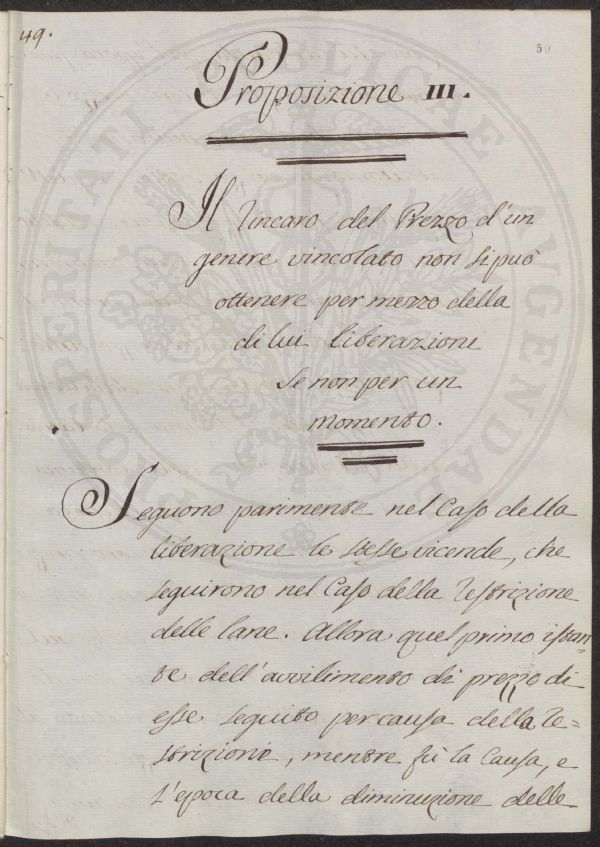 49.
50
Proposizione III.
Il rincaro del Prezzo d'un
genere vincolato non si può
ottenere per mezzo della
di lui liberazione
se non per un
momento.
Seguono parimente nel Caso della
liberazione le stesse vicende, che
seguirono nel Caso della restrizione
delle lane. Allora quel primo istan=
te dell'avvilimento di prezzo di
esse seguito per causa della re=
strizione, mentre fù la Causa, e
l'epoca della diminuzione delle
PROSPERITATI PUBLICAE AVGENDAE